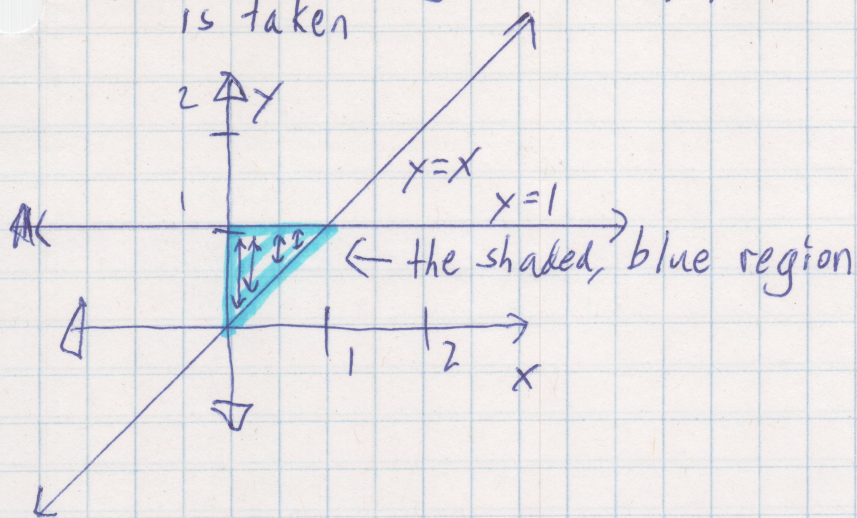 is taken
2 y
y=x
1 y=1
← the shaded, blue region
1 2
x